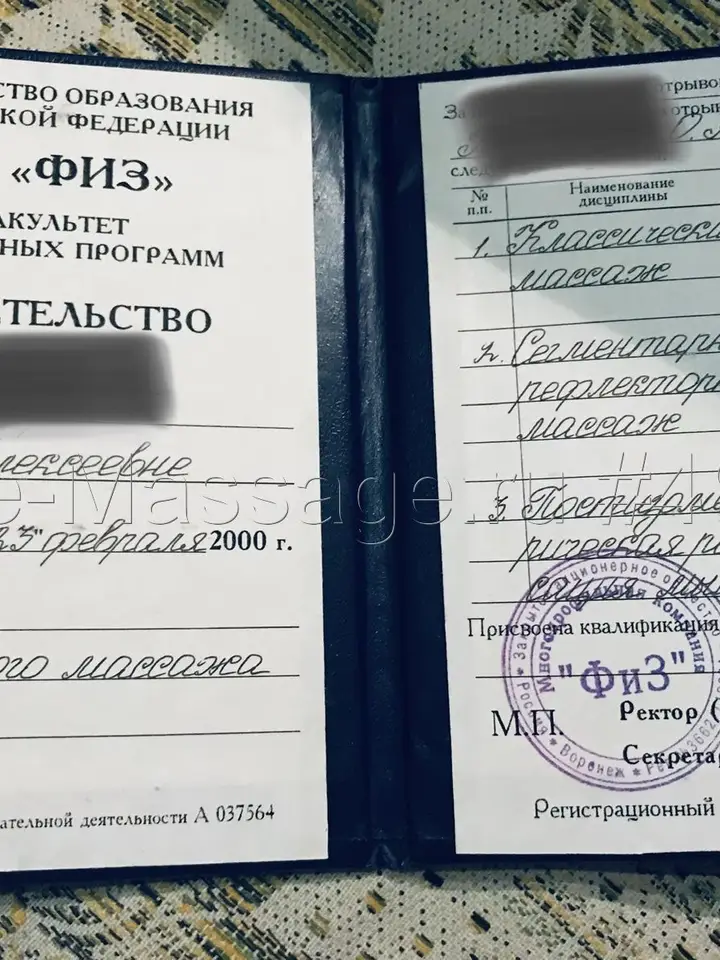 СТВО ОБРАЗОВАНИЯ
КОЙ ФЕДЕРАЦИИ
«ФИЗ»
АКУЛЬТЕТ
НЫХ ПРОГРАММ
ТЕЛЬСТВО
лексеевне
23" февраля 2000 г.
ого массажа
ательной деятельности А 037564
отрыво
За отрын
О.А
след
№ п.п.
Наименование
дисциплины
1. Классически
массаж
2. Сегментарн
рефлектор
массаж
3. Постизоме
рическая ре
Присвоена квалификация
М.П.
Ректор (
Секретар
Регистрационный
Закрытое акционерное общество
Многопрофильная компания
"ФиЗ"
Россия * Воронеж *
e-Massage.ru #